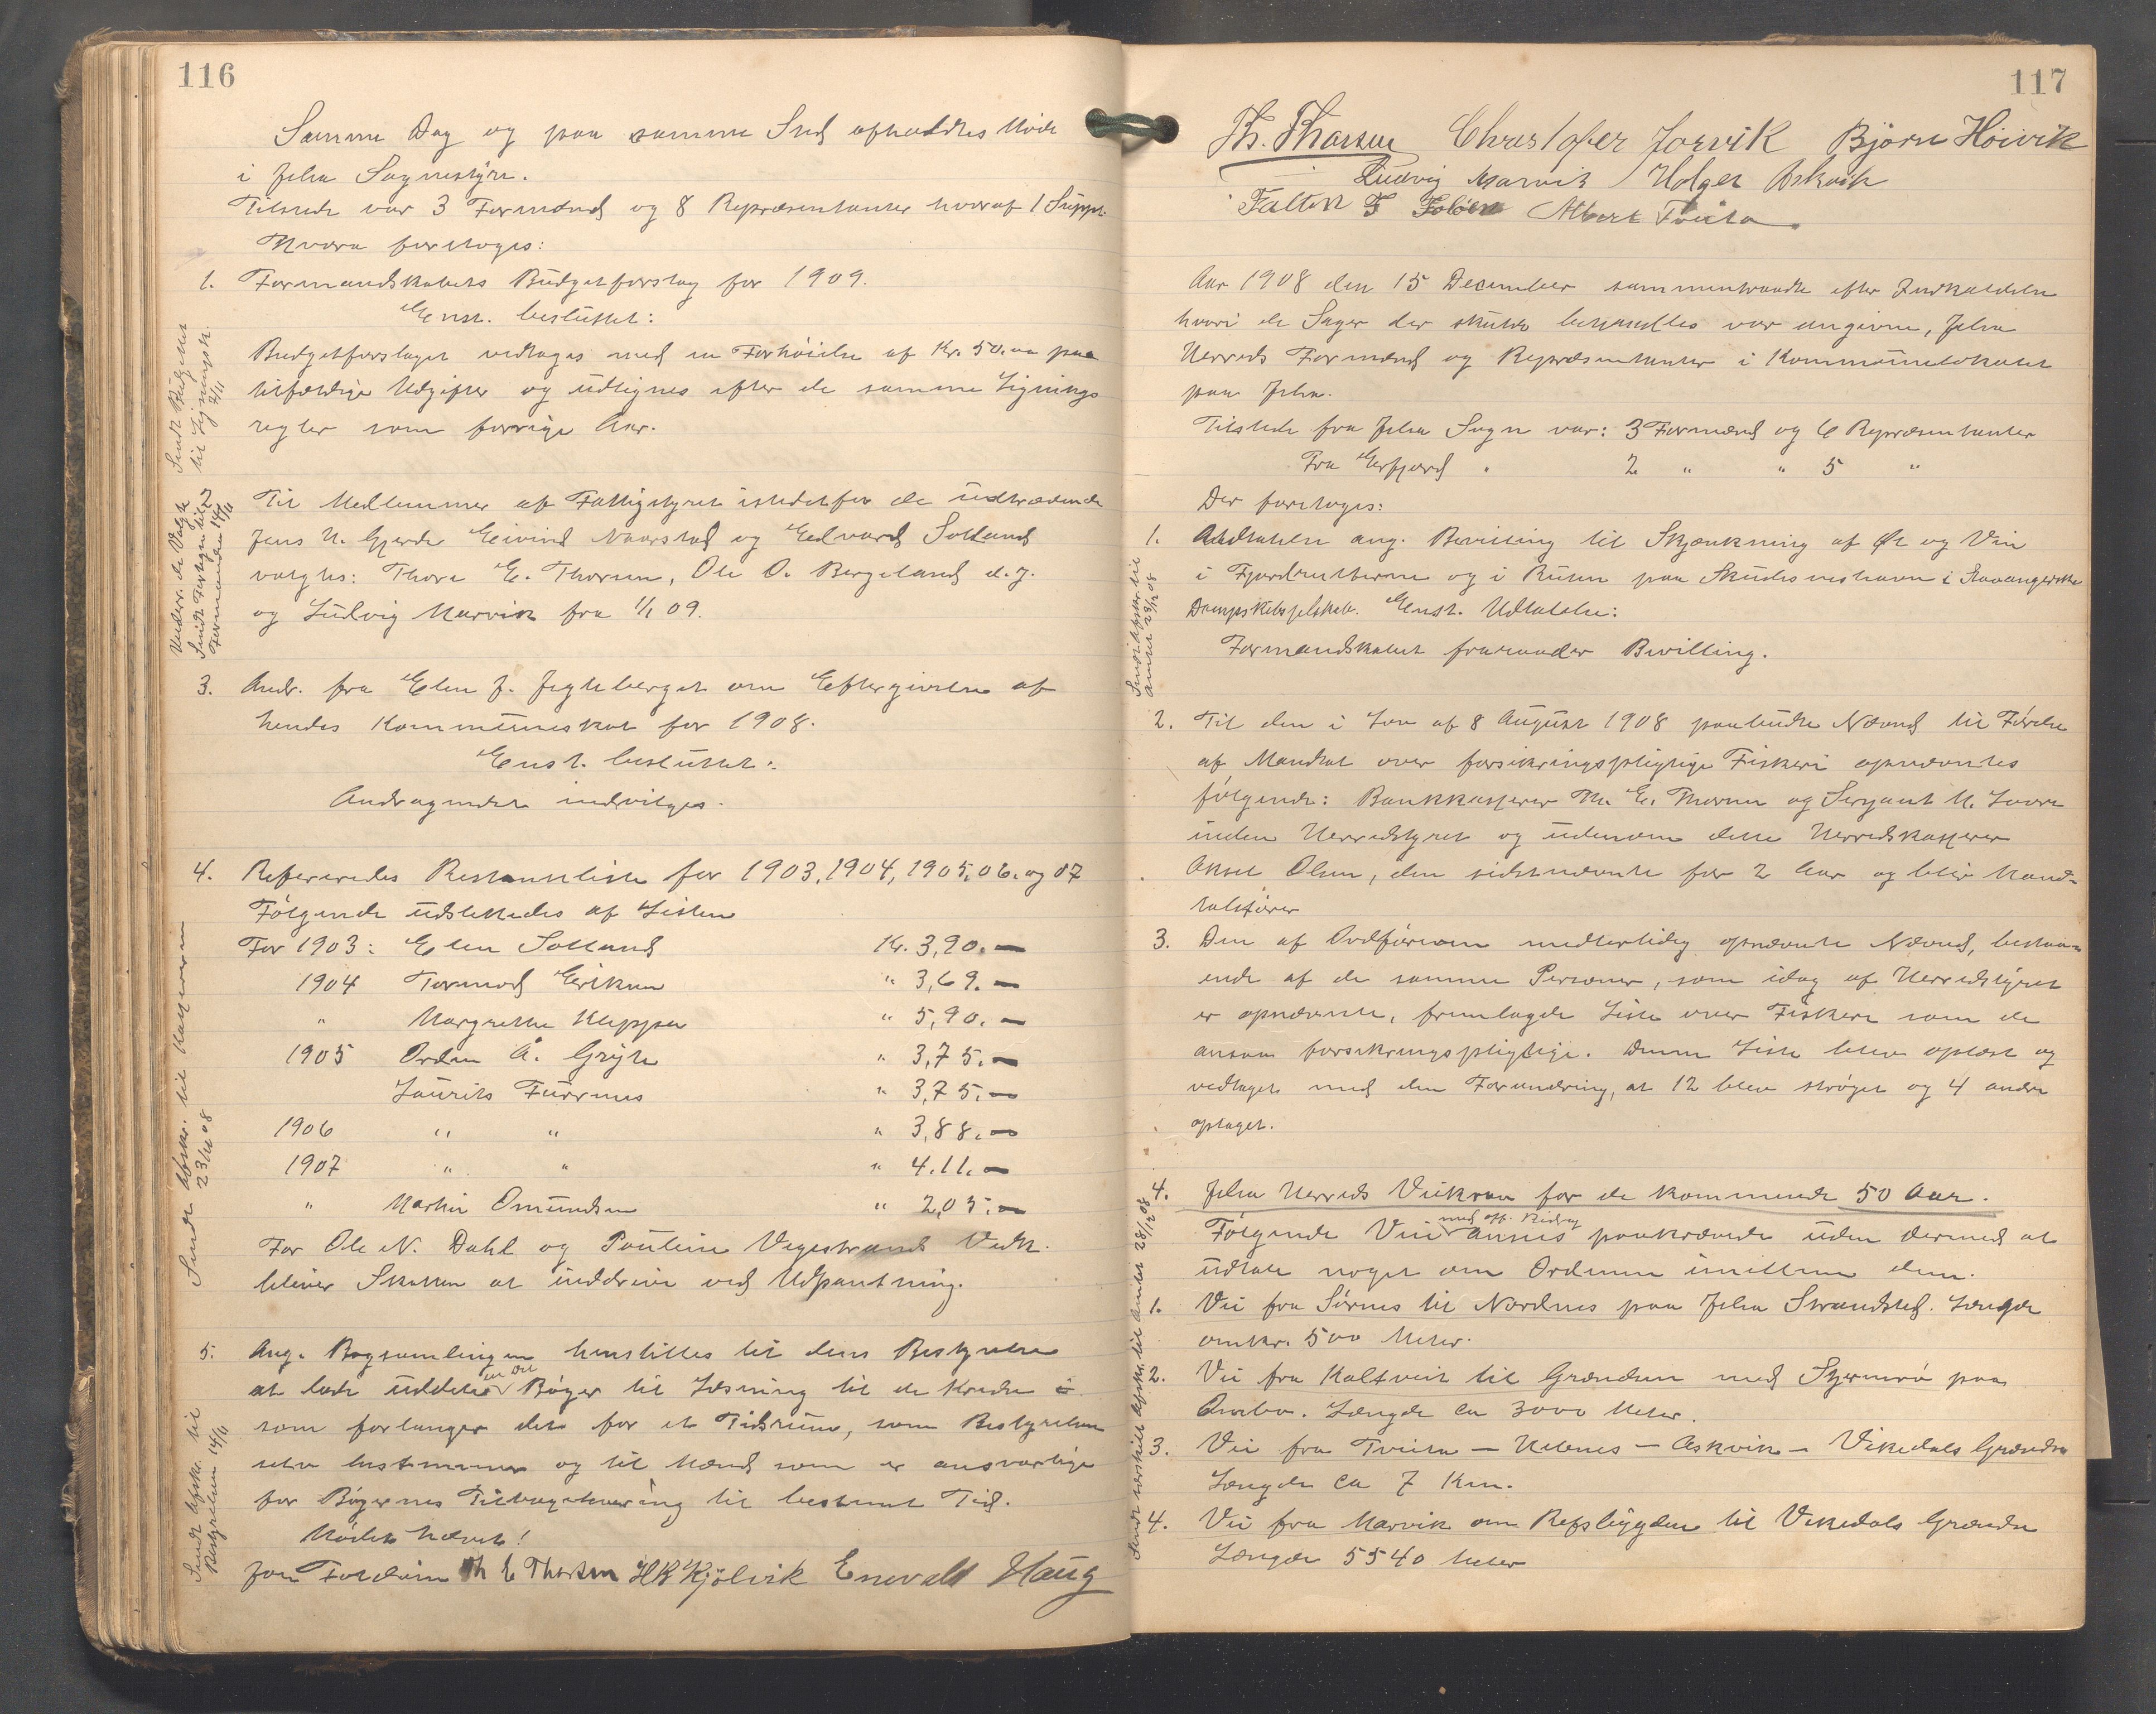 116
Samme Dag og paa samme Sted afholdtes Møde
i Jelsa Sognestyre.
Tilstede var 3 Formænd og 8 Repræsentanter hvoraf 1 Suppl.
Hvora foretoges:
1. Formandskabets Budgetforslag for 1909.
Enst. besluttet:
Budgetforslaget vedtoges med en Forhøielse af Kr. 50.00 paa
tilfældige Udgifter og udlignes efter de samme Lignings
regler som forrige Aar.
Sendt Budgettet
til Ligningsk.
2/11
2
Til Medlemmer af Fattigstyret istedetfor de udtrædende
Jens N. Gjerde Eivind Naarstad og Edvard Solland
valgtes: Thore E. Thorsen, Ole O. Bergeland d.y.
og Ludvig Marvik fra 1/1 09.
Underr. de Valgte
Sendt Fortegn. til
Formanden 14/11
3. Andr. fra Elen J. Jegleberget om Eftergivelse af
hendes Kommuneskat for 1908.
Enst. besluttet:
Andragendet indvilges.
4. Refereredes Restanseliste for 1903, 1904, 1905, 06. og 07
Følgende udslettedes af Listen
For 1903: Elen Solland Kr. 3,90.—
1904 Tormod Eriksen " 3,69.—
" Margrethe Kleppa " 5,90.—
1905 Orden A. Gryte " 3,75.—
Laurits Furrnes " 3,75.—
1906 " " " 3,88.—
1907 " " " 4.11.—
" Martin Omundsen " 2,05.—
For Ole N. Dahl og Pauline Vegestrand Vedk.
bliver Skatten at inddrive ved Udpantning.
Sendt Afskr. til Kassereren
23/11 08
5. Ang. Bogsamlingen henstilles til dens Bestyrelse
at lade uddele en Del Bøger til Læsning til de Kredse
som forlanger det for et Tidsrum, som Bestyrelsen
selv bestemmer og til Mænd som er ansvarlige
for Bøgernes Tilbagelevering til bestemt Tid.
Sendt Afskr. til
Bestyrelsen 14/11
Mødet hævet!
Jon Foldøin Th E Thorsen HK Kjölvik Enevald Haug
117
Th. Thorsen Christofer Jorvik Björn Höivik
Ludvig Marvik Holger Askvik
Falten F Foldøen Albert Tveita
Aar 1908 den 15 December sammentraadte efter Indkaldelse
hvori de Sager der skulde behandles var angivne, Jelsa
Herreds Formænd og Repræsentanter i Kommunelokalet
paa Jelsa.
Tilstede fra Jelsa Sogn var: 3 Formænd og 6 Repræsentanter
Fra Erfjord " 2 " " 5 "
Der foretoges:
1. Udtalelse ang. Bevilling til Skjænkning af Øl og Vin
i Fjordrutterne og i Ruten paa Skudesneshavn i Stavangerske
Dampskibsselskab. Enst. Udtalelse:
Formandskabet fraraader Bevilling.
Sendt Afskr. til
Amtet 28/12 08
2. Til den i Lov af 8 August 1908 paabudte Nævnd til Førelse
af Mandtal over forsikringspligtige Fiskeri opnævntes
følgende: Bankkasserer Th. E. Thorsen og Sergeant M. Lovra
inden Herredstyret og udenom dette Herredskasserer
Aksel Olsen, den sidstnævnte for 2 Aar og bliv Mand-
talsfører
3. Den af Ordføreren midlertidig opnævnte Nævnd, bestaa-
ende af de samme Personer, som idag af Herredstyret
er opnævnte, fremlagde Liste over Fiskere som de
ansaa forsikringspligtige. Denne Liste blev oplæst og
vedtaget med den Forandring, at 12 blev strøget og 4 andre
optaget.
4. Jelsa Herreds Veikrav for de kommende 50 Aar.
Følgende Veie med off. Bidrag ansees paakrævede uden dermed at
udtale noget om Ordenen imellem dem.
1. Vei fra Sørnes til Nordnes paa Jelsa Strandsted. Længde
omkr. 500 Meter.
2. Vei fra Kaltveit til Grændsen med Sjernerø paa
Ombo. Længde ca 3000 Meter.
3. Vei fra Tveita — Hebnes — Askvik — Vikedals Grændse
Længde ca 7 Km.
4. Vei fra Marvik om Refsbygden til Vikedals Grændse
Længde 5540 Meter
Sendt særskilt Afskr. til Amtet 28/12 08